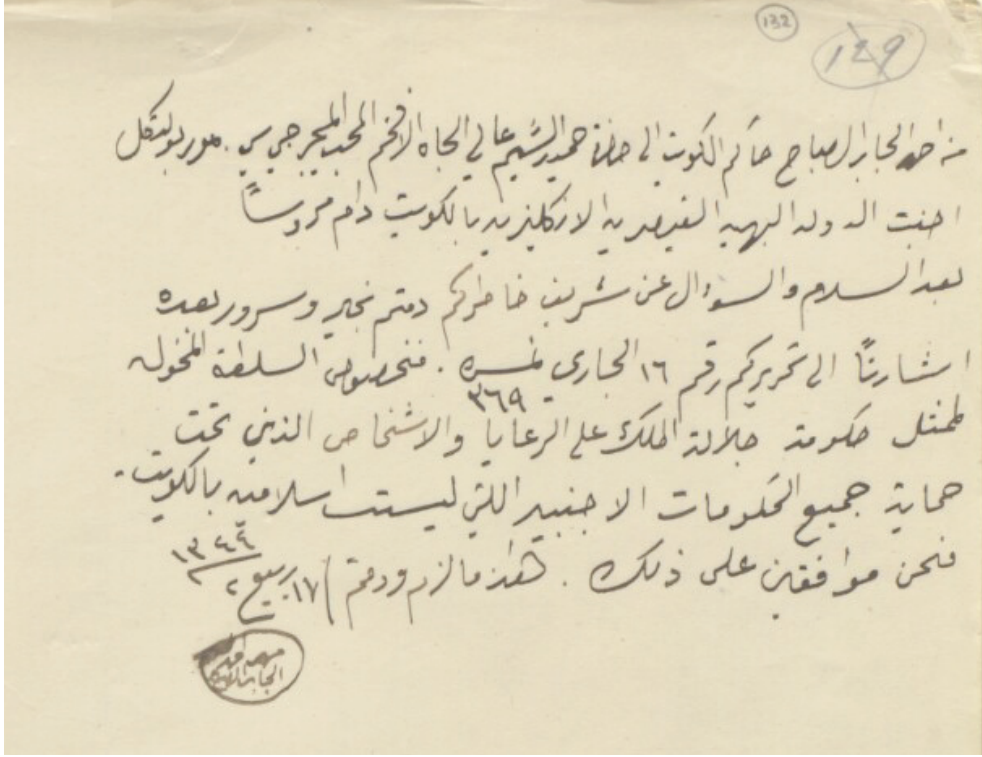 132
129
من احمد الجابر الصباح حاكم الكويت الى حضرة حميد الشيم عالي الجاه الافخم المحب الميجر جي سي . مور بولتكل
اجنت الدوله البهيه القيصريه الانكليزيه بالكويت دام محروساً
بعد السلام والسؤال عن شريف خاطركم دمتم بخير وسرور بعده
اشارتاً الى تحريركم رقم ١٦ الجاري نمره ٣٦٩ . فنخصوص السلطة المخوله
لممثل حكومة جلالة الملك على الرعايا والاشخاص الذين تحت
حماية جميع الحكومات الاجنبيه اللتي ليست اسلاميه بالكويت .
فنحن موافقين على ذلك . هذا ما لزم ودمتم ١٧ ربيع ٢ ١٣٤٤
احمد الجابر